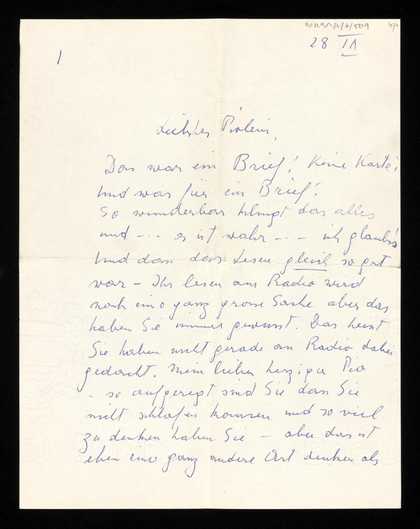 28 IX
1
Liebstes Piolein,
Das war ein Brief! Keine Karte!
Und was für ein Brief!
So wunderbar klingt das alles
und --- es ist wahr --- ich glaub's!
Und dass das Lesen gleich so gut
war - Ihr lesen am Radio wird
noch eine ganz grosse Sache aber das
haben Sie immer gewusst. Das heisst
Sie haben nicht gerade an Radio dabei
gedacht, mein lieber herziger Pio
- so aufgeregt sind Sie dass Sie
nicht schlafen können und so viel
zu denken haben Sie - aber das ist
eben eine ganz andere Art denken als